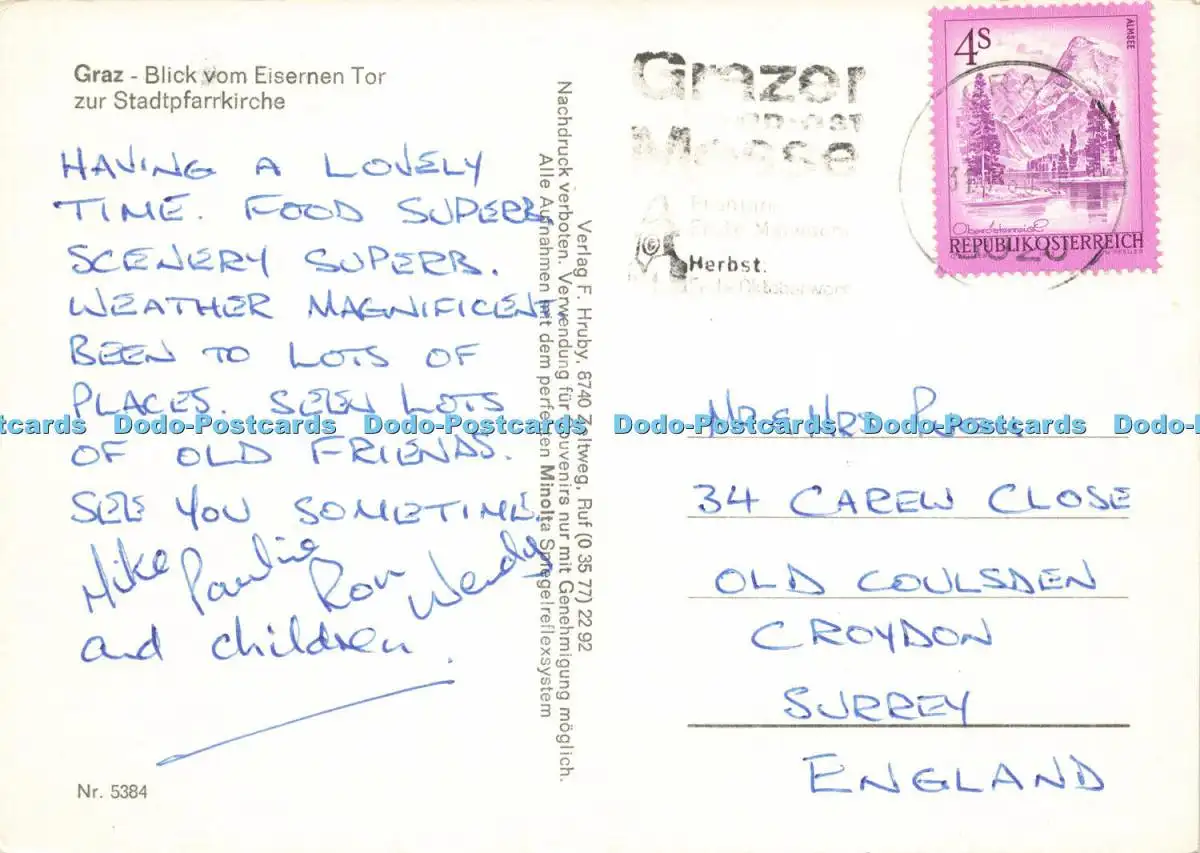 Graz - Blick vom Eisernen Tor
zur Stadtpfarrkirche
HAVING A LOVELY
TIME. FOOD SUPERB.
SCENERY SUPERB.
WEATHER MAGNIFICENT.
BEEN TO LOTS OF
PLACES. SEEN LOTS
OF OLD FRIENDS.
SEE YOU SOMETIME.
Mike Pauline Ron Wendy
and children.
Nr. 5384
Verlag F. Hruby, 8740 Zeltweg, Ruf (0 35 77) 22 92
Nachdruck verboten. Verwendung für Souvenirs nur mit Genehmigung möglich.
Alle Aufnahmen mit dem perfekten Minolta Spiegelreflexsystem
Grazer
Messe
Herbst:
4S
ALMSEE
Oberösterreich
REPUBLIK ÖSTERREICH
MR & MRS
34 CAREW CLOSE
OLD COULSDEN
CROYDON
SURREY
ENGLAND
Dodo-Postcards Dodo-Postcards Dodo-Postcards Dodo-Postcards